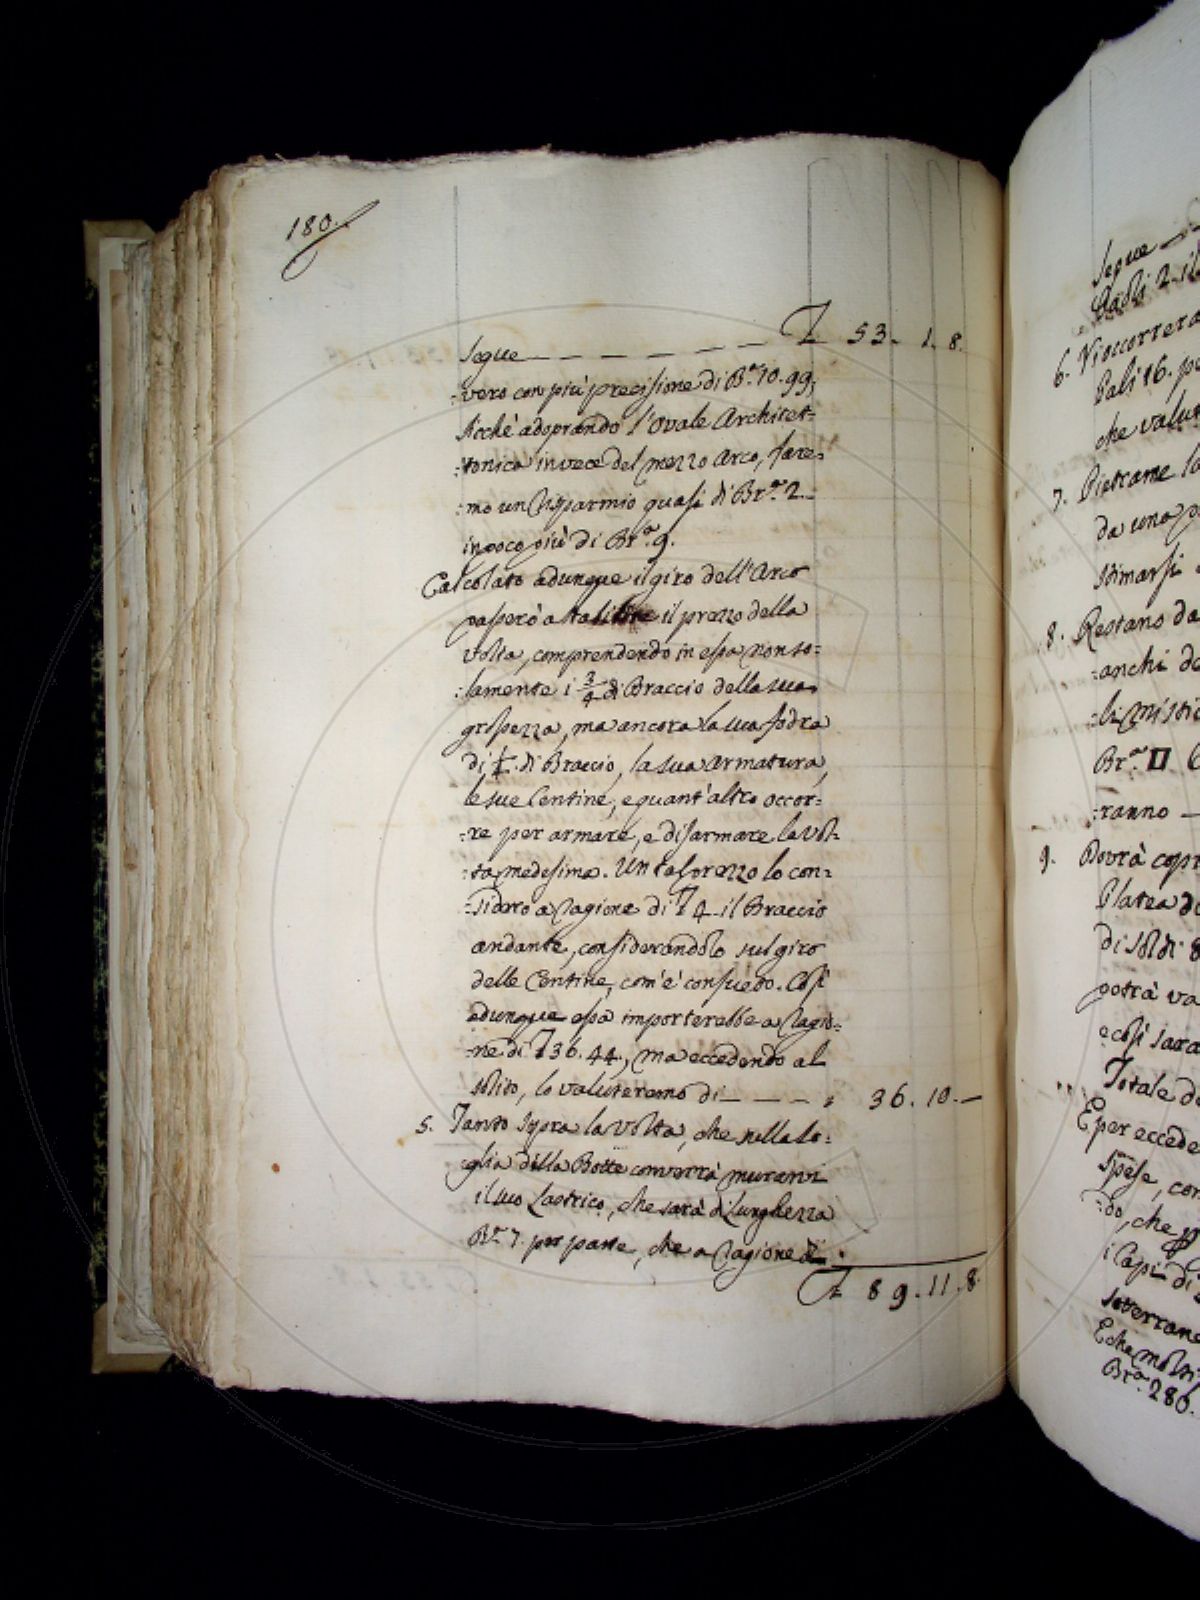 180.
Segue — — — — — — £ 53. 1. 8.
:vero con più precisione di Bra. 10.99,
Sicchè adoprando l'Ovale Architet:
:tonico invece del mezzo Arco, fare:
:mo un risparmio quasi di Bra. 2
in poco più di Bra. 9.
Calcolato adunque il giro dell'Arco
passerò a stabilire il prezzo della
Volta, comprendendo in essa non so:
:lamente i 3/4 di Braccio della sua
grossezza, ma ancora la sua fodra
di 1/4 di Braccio, la sua Armatura,
le sue Centine, e quant'altro occor:
:re per armare, e disarmare la Vol:
:ta medesima. Un tal prezzo lo con:
:sidero a ragione di £ 4 il Braccio
andante, considerandolo sul giro
delle Centine, com'è consueto. Così
adunque essa importerebbe a ragio:
:ne di £ 36.44., ma eccedendo al
solito, lo valuteremo di — — — „ 36. 10. —
5. Tanto sopra la Volta, che nella so:
:glia della Botte converrà murarvi
il suo Lastrico, che sarà di Lunghezza
Bra. 7. per parte, che a ragione di
£ 89. 11. 8.
Segue —
Paoli 2. il
6. Vi occorrera
Pali 16. pe
che valut
7. Pietrame la
da una p
stimarsi
8. Restano da
:anchi de
Bra. □ 6
:ranno —
9. Dovrà copr
Platea de
di soldi 8
potrà va
e così sara
Totale de
E per eccede
Spese, con
:do, che
i Capi di
sotterrane
E che molti
Bra. 280.